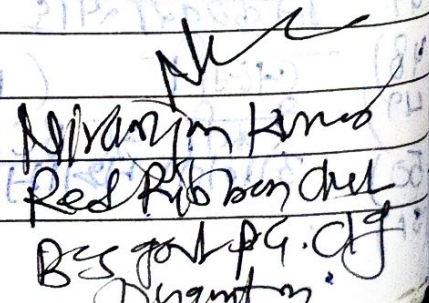 Niranjan Kumar
Red Ribbon Club
BCS govt P.G. Clg
Dhamtari